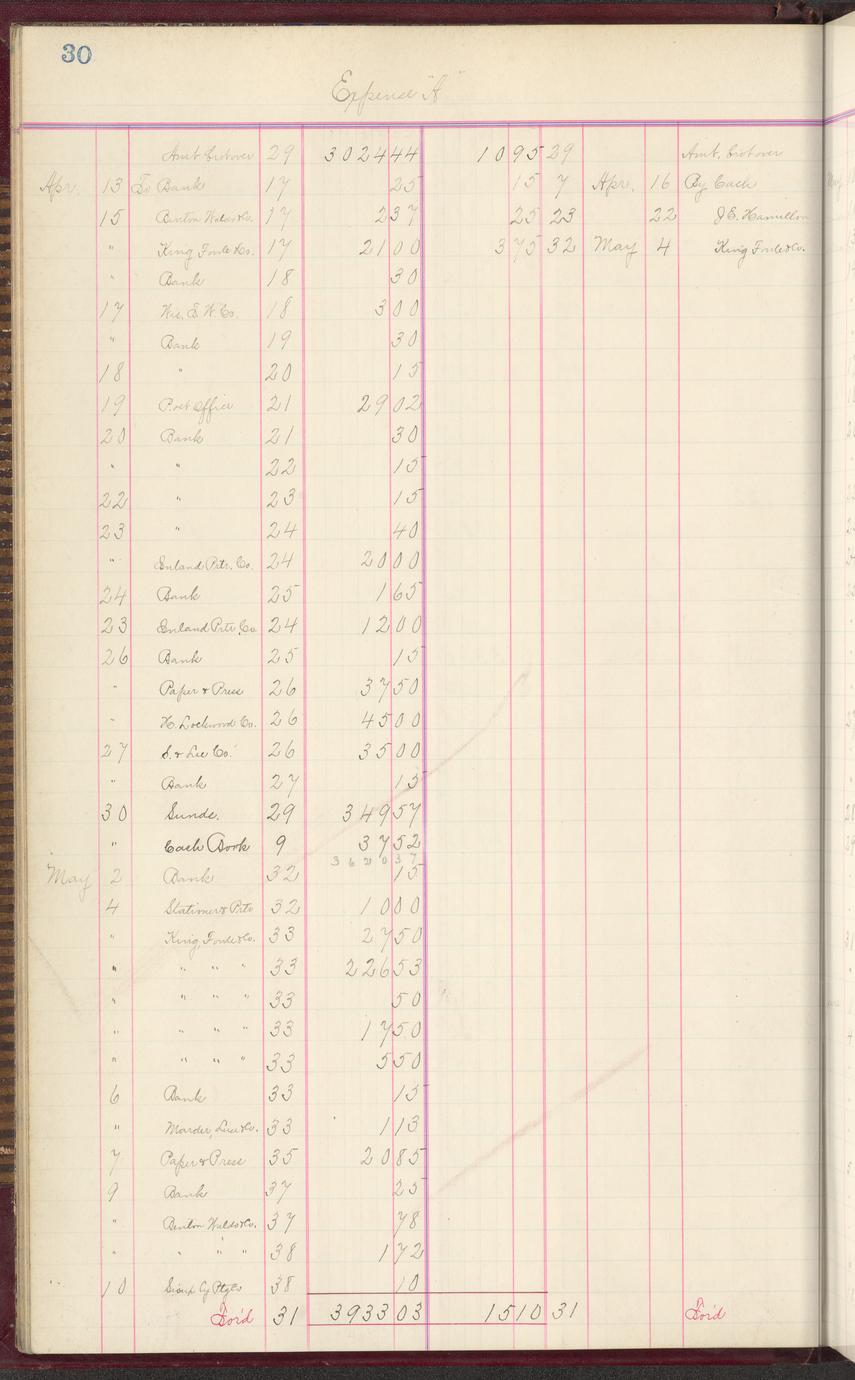 30
Expense "A"
Amt. brot over 29 3024 44 1095 29 Amt. brot over
Apr. 13 To Bank 17 25 15 7 Apr. 16 By Cash
15 Benton Waldo & Co. 17 2 37 25 23 22 J.E. Hamilton
" King Fowle & Co. 17 21 00 375 32 May 4 King Fowle & Co.
" Bank 18 30
17 Wis. E. W. Co. 18 3 00
" Bank 19 30
18 " 20 15
19 Post Office 21 29 02
20 Bank 21 30
" " 22 15
22 " 23 15
23 " 24 40
" Enland Prtr. Co. 24 20 00
24 Bank 25 1 65
23 Enland Prtr. Co 24 12 00
26 Bank 25 15
" Paper & Press 26 37 50
" H. Lockwood Co. 26 45 00
27 S. & Lee Co. 26 35 00
" Bank 27 15
30 Sunds. 29 349 57
" Cash Book 9 37 52
3620 37
May 2 Bank 32 15
4 Stationer & Prtr 32 10 00
" King, Fowle & Co. 33 27 50
" " " " 33 226 53
" " " " 33 50
" " " " 33 17 50
" " " " 33 5 50
6 Bank 33 15
" Marder, Luse & Co. 33 1 13
7 Paper & Press 35 20 85
9 Bank 37 25
" Benton Waldo & Co. 37 78
" " " " 38 1 72
10 Sioux Cy Ptg Co 38 10
For'd 31 3933 03 1510 31 For'd